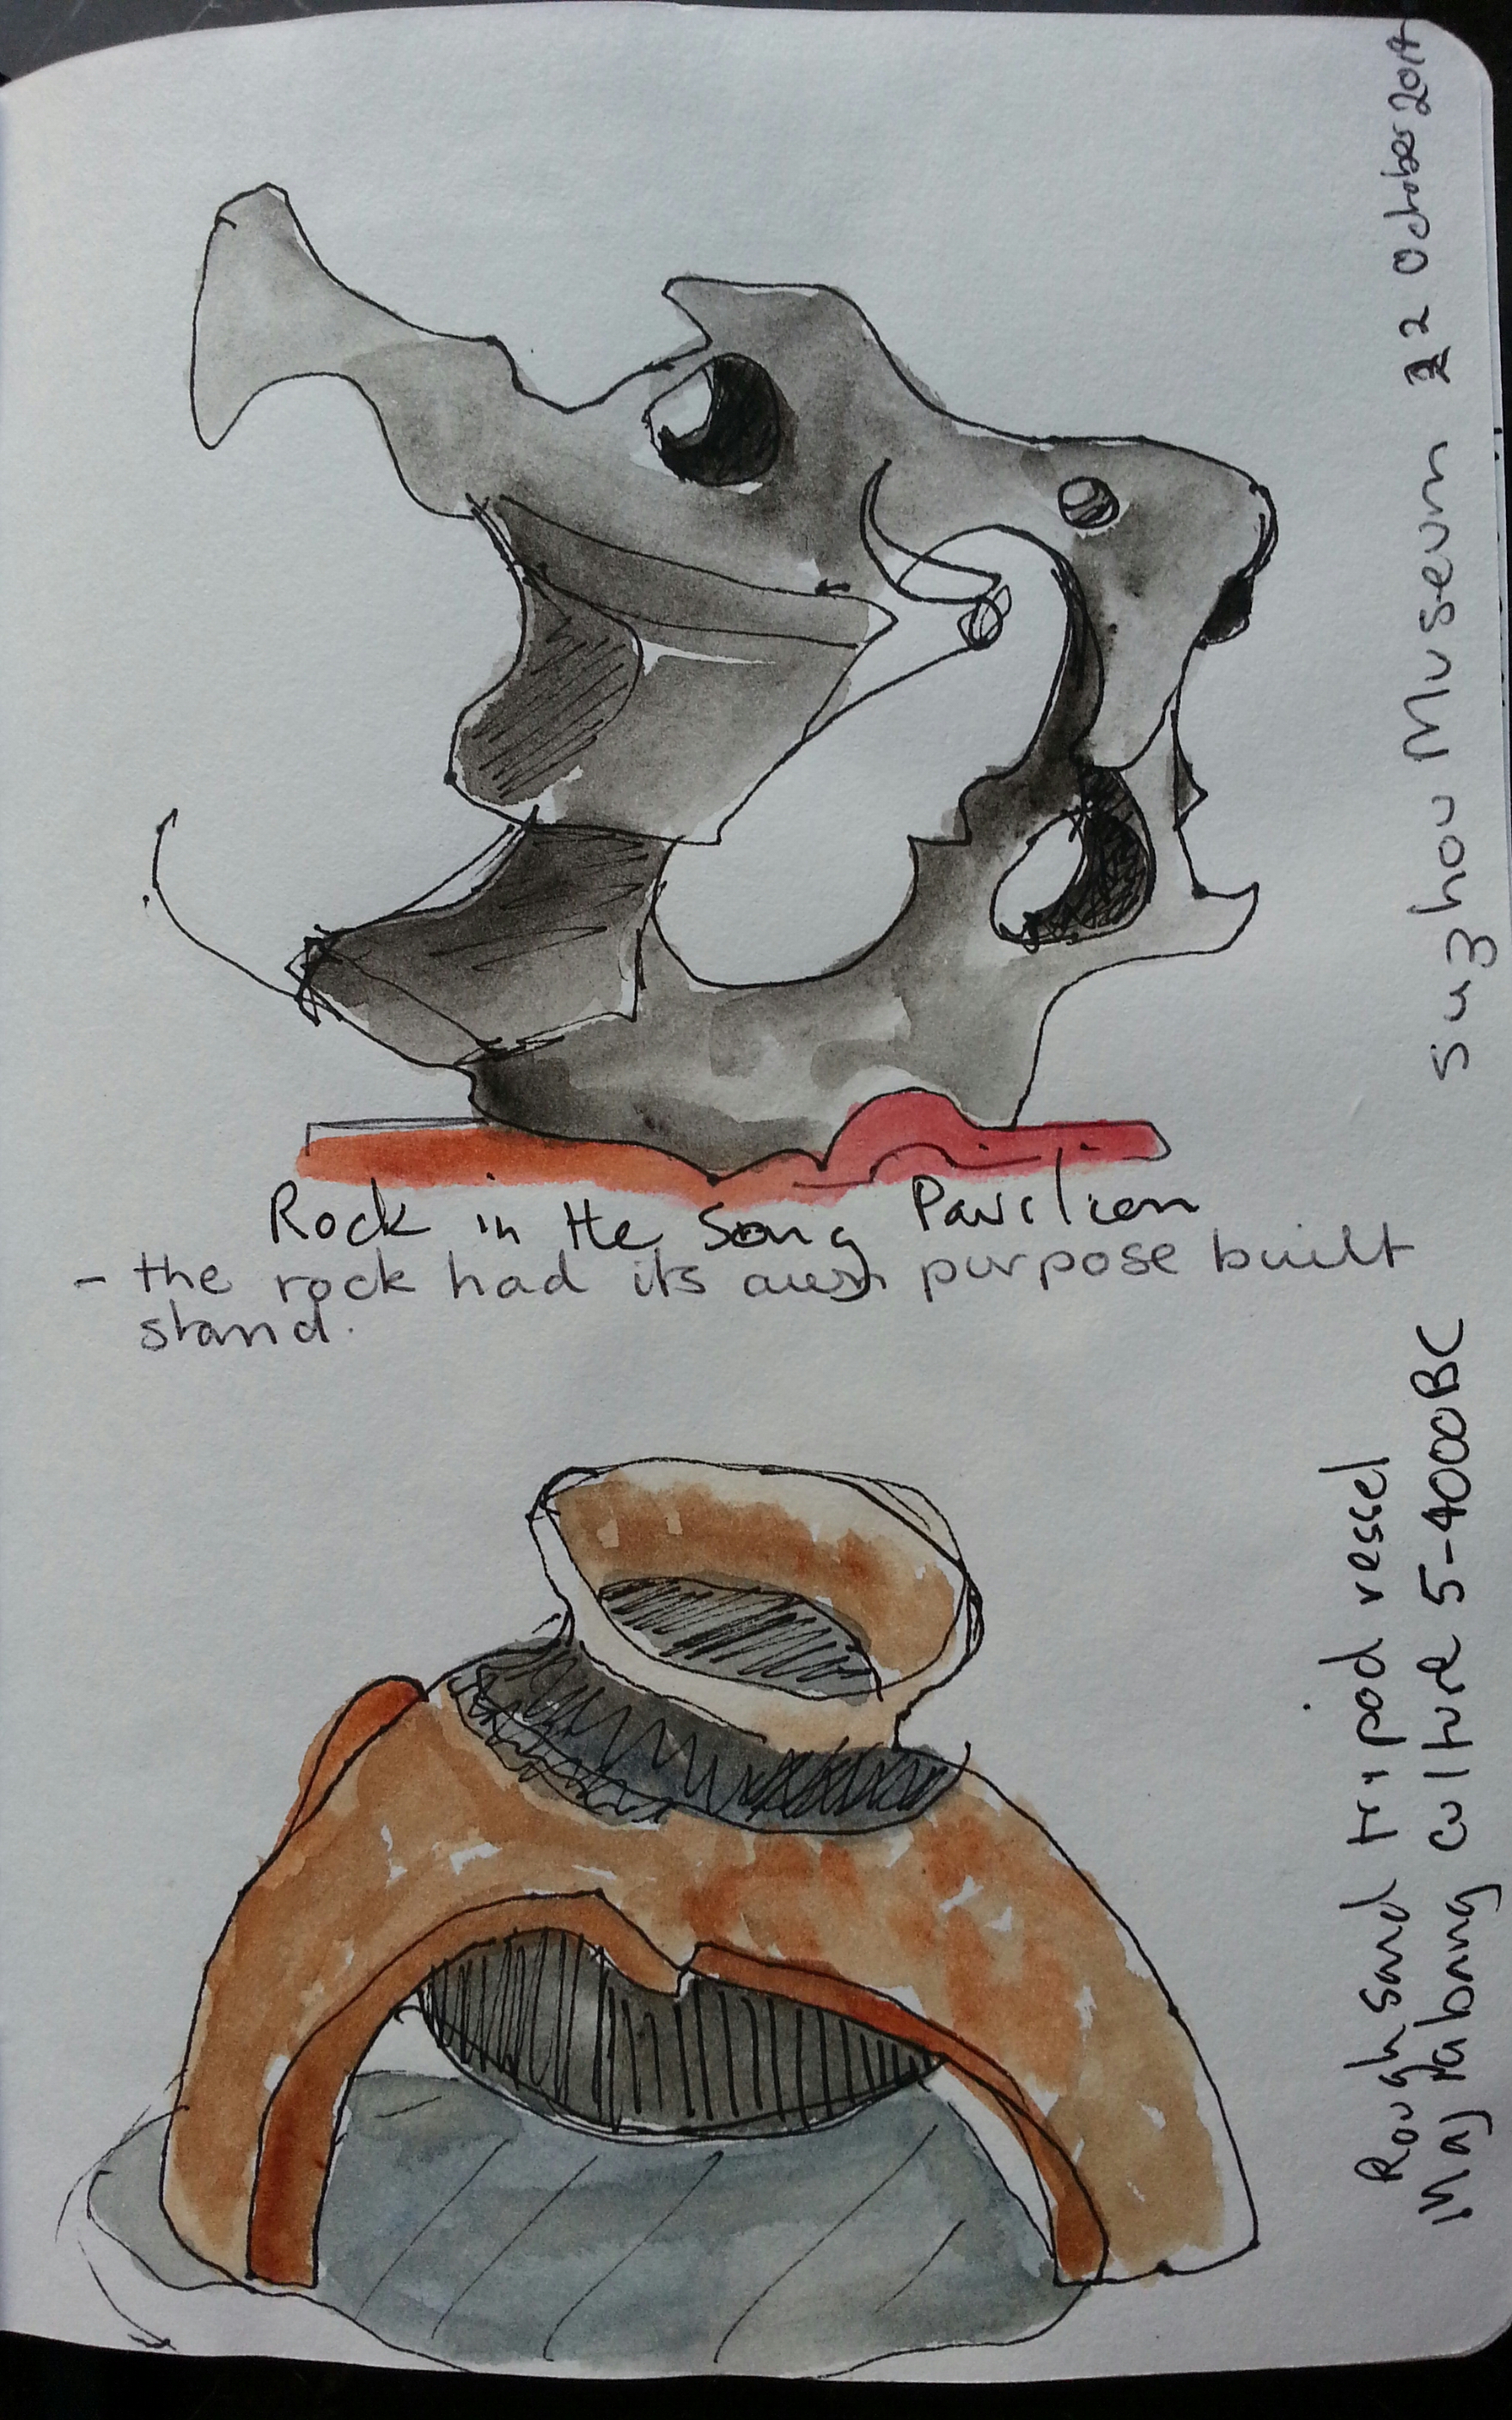 Suzhou Museum 22 October 2014
Rock in the Song Pavilion
- the rock had its own purpose built
stand.
Rough sand tripod vessel
Majiabang culture 5-4000BC